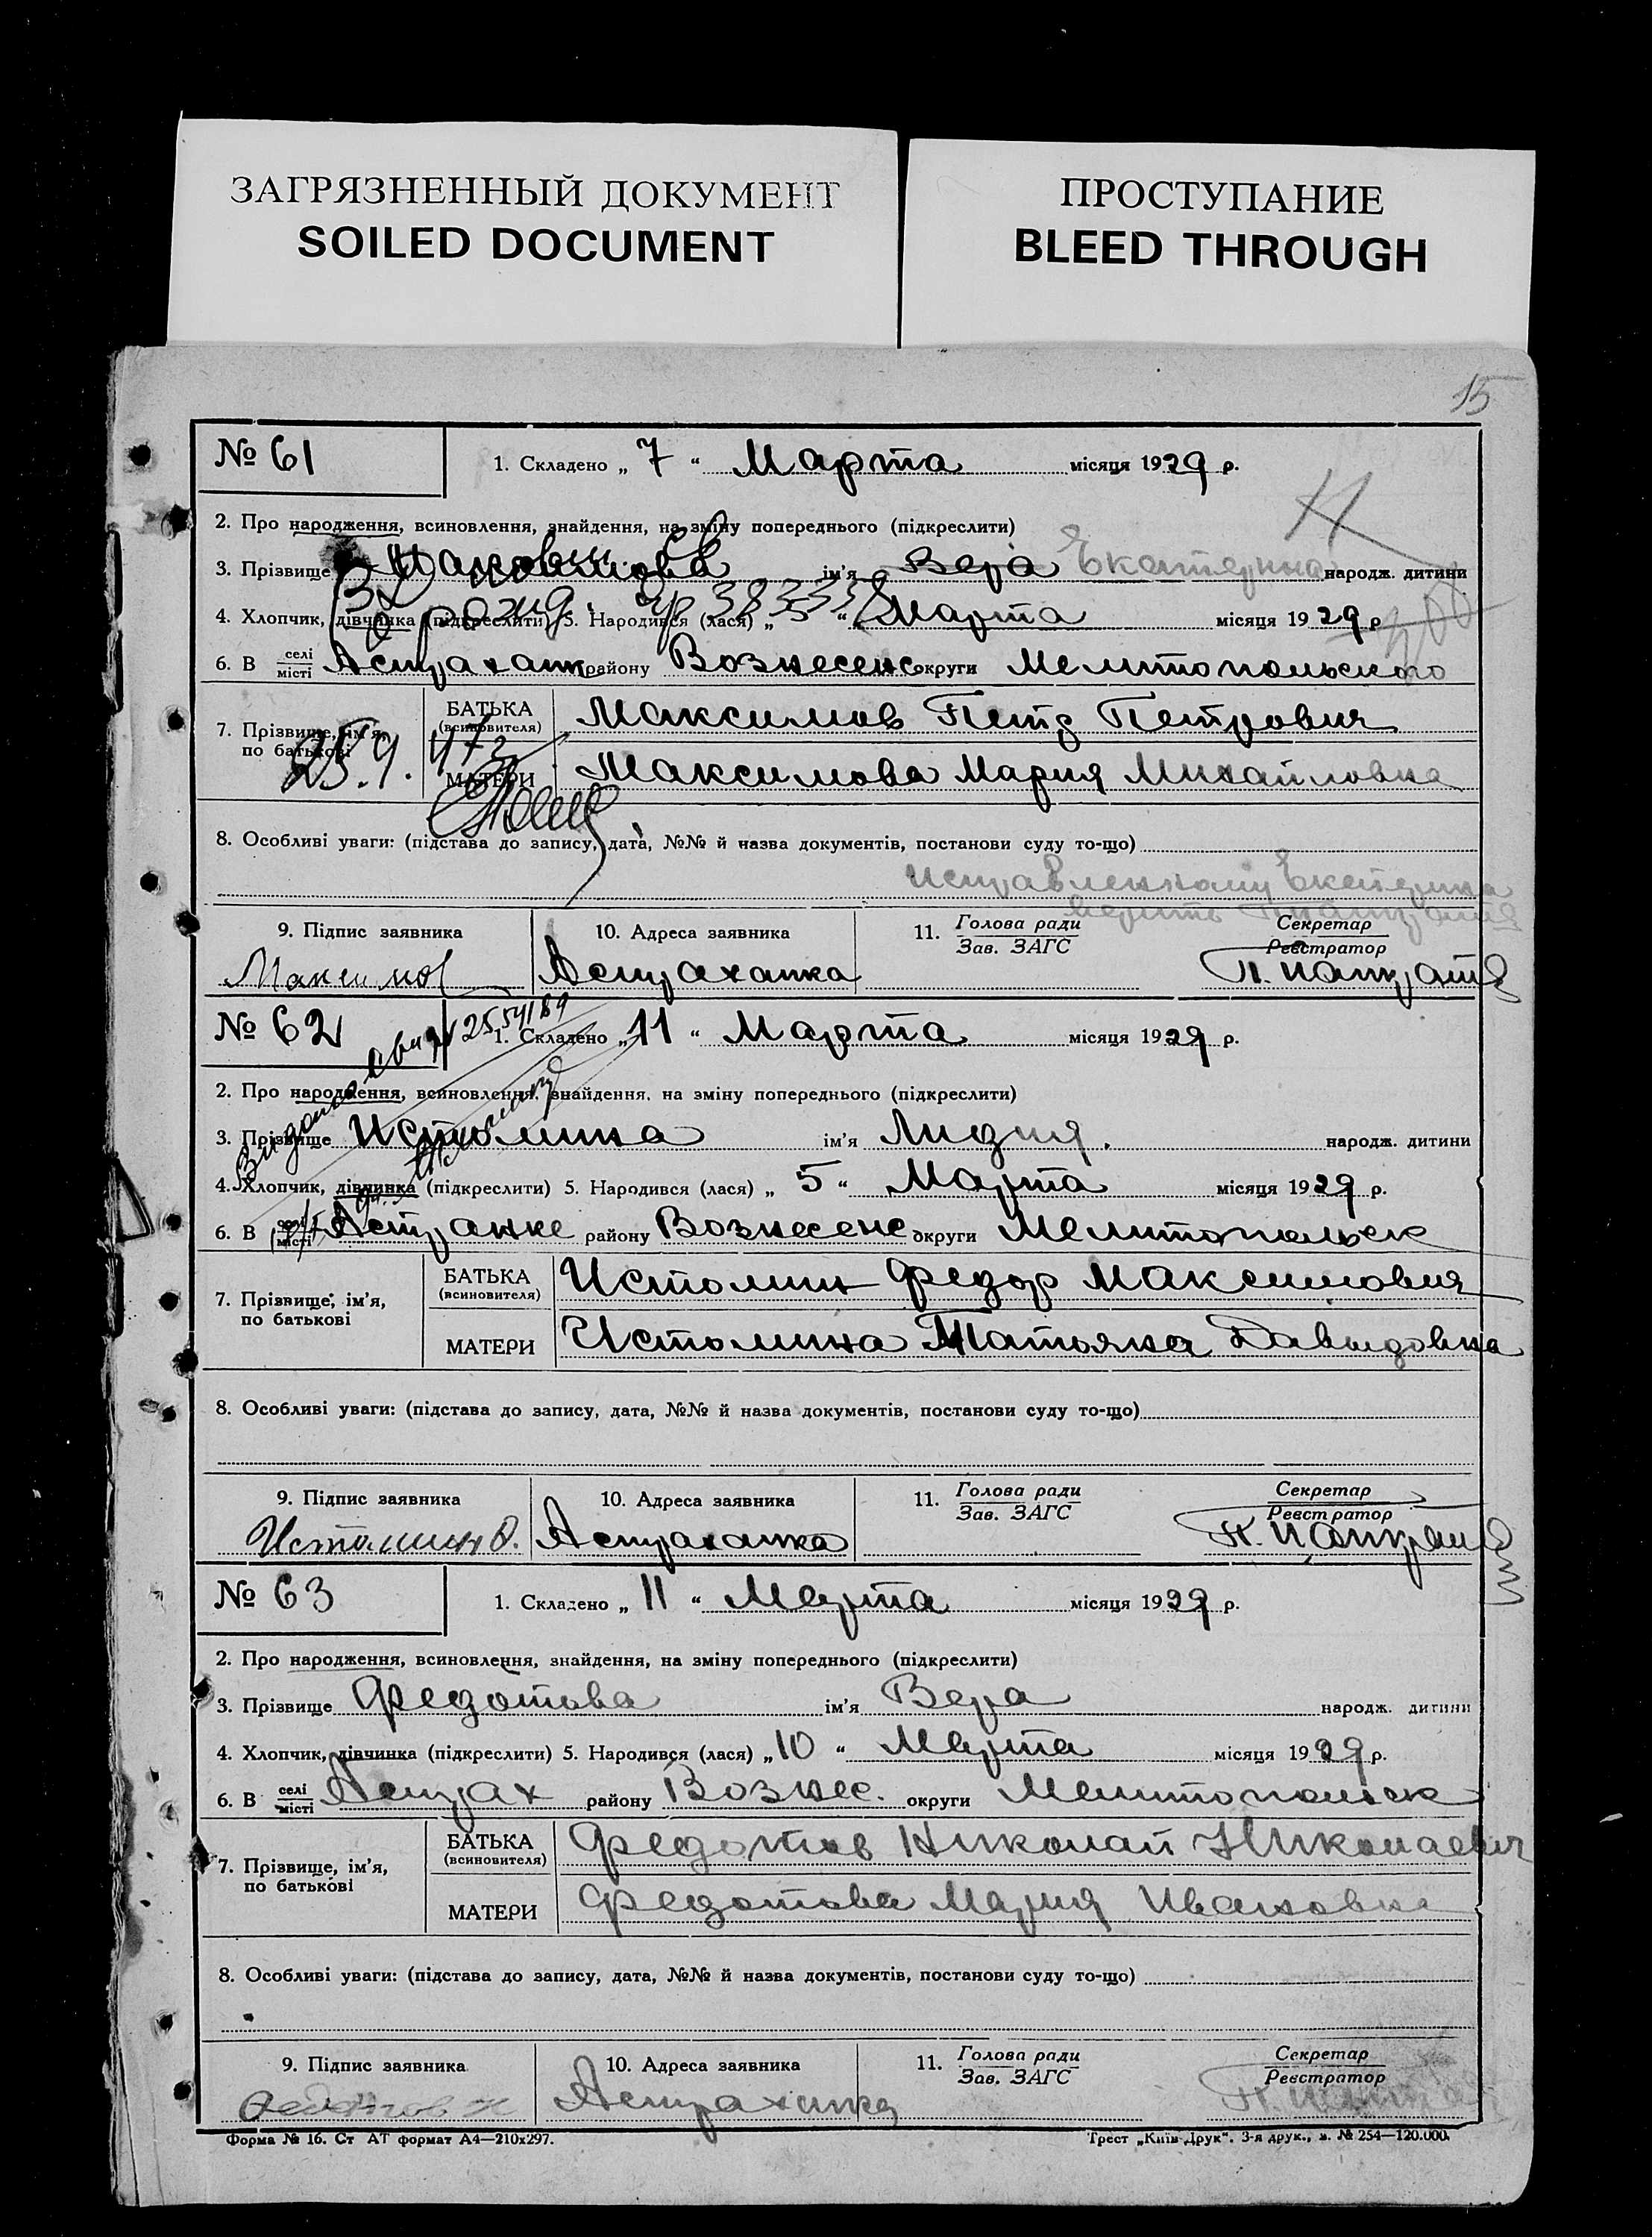 ЗАГРЯЗНЕННЫЙ ДОКУМЕНТ
SOILED DOCUMENT
ПРОСТУПАНИЕ
BLEED THROUGH
15
№ 61
1. Складено „ 7 “ Марта місяця 1929 р.
2. Про народження, всиновлення, знайдення, на зміну попереднього (підкреслити)
3. Прізвище ім'я Вера Екатерина народж. дитини
4. Хлопчик, дівчинка (підкреслити) 5. Народився (лася) „ “ Марта місяця 1929 р
6. В селі місті Астраханк району Вознесенс округи Мелитопольского
7. Прізвище, ім'я, по батькові
БАТЬКА (всиновителя) Максимов Петр Петрович
МАТЕРИ Максимова Мария Михайловна
25.9. 473
8. Особливі уваги: (підстава до запису, дата, №№ й назва документів, постанови суду то-що)
Исправленному Екатерина
верить
9. Підпис заявника
10. Адреса заявника
11. Голова ради Зав. ЗАГС
Секретар Реєстратор
Максимов Астраханка
№ 62
1. Складено „ 11 “ Марта місяця 1929 р.
2. Про народження, всиновлення, знайдення, на зміну попереднього (підкреслити)
3. Прізвище Истомина ім'я Лидия. народж. дитини
4. Хлопчик, дівчинка (підкреслити) 5. Народився (лася) „ 5 “ Марта місяця 1929 р.
6. В селі місті Астранке району Вознесенс округи Мелитопольск
7. Прізвище, ім'я, по батькові
БАТЬКА (всиновителя) Истомин Федор Максимович
МАТЕРИ Истомина Татьяна Давыдовна
8. Особливі уваги: (підстава до запису, дата, №№ й назва документів, постанови суду то-що)
9. Підпис заявника
10. Адреса заявника
11. Голова ради Зав. ЗАГС
Секретар Реєстратор
Истомин Ф. Астраханка
№ 63
1. Складено „ 11 “ Марта місяця 1929 р.
2. Про народження, всиновлення, знайдення, на зміну попереднього (підкреслити)
3. Прізвище Федотова ім'я Вера народж. дитини
4. Хлопчик, дівчинка (підкреслити) 5. Народився (лася) „ 10 “ Марта місяця 1929 р.
6. В селі місті Астрах району Вознес. округи Мелитопольск
7. Прізвище, ім'я, по батькові
БАТЬКА (всиновителя) Федотов Николай Николаевич
МАТЕРИ Федотова Мария Ивановна
8. Особливі уваги: (підстава до запису, дата, №№ й назва документів, постанови суду то-що)
9. Підпис заявника
10. Адреса заявника
11. Голова ради Зав. ЗАГС
Секретар Реєстратор
Федотов Н Астраханка
Форма № 16. Ст АТ формат А4—210х297.
Трест „Київ-Друк“. 3-я друк., з. № 254—120.000.